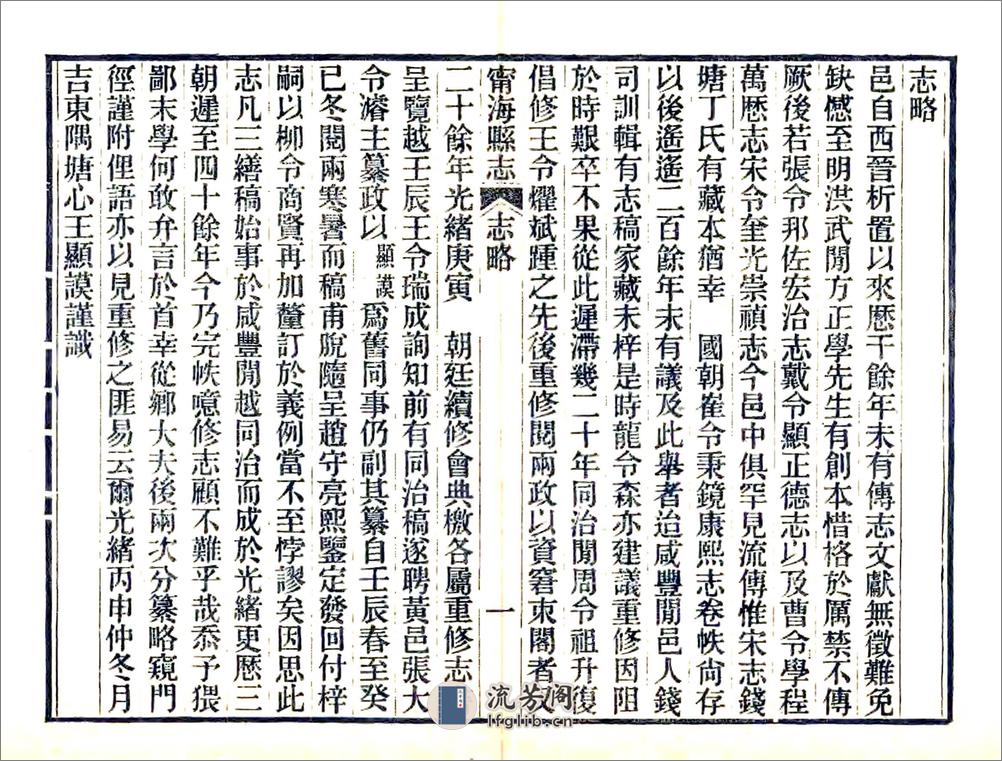 志略
邑自西晉析置以來歷千餘年未有傳志文獻無徵難免
缺憾至明洪武閒方正學先生有創本惜格於厲禁不傳
厥後若張令那佐宏治志戴令顯正德志以及曹令學程
萬歷志宋令奎光崇禎志今邑中俱罕見流傳惟宋志錢
塘丁氏有藏本猶幸　國朝崔令秉鏡康熙志卷帙尙存
以後遙遙二百餘年未有議及此舉者迨咸豐閒邑人錢
司訓輯有志稿家藏未梓是時龍令森亦建議重修因阻
於時艱卒不果從此遲滯幾二十年同治閒周令祖升復
倡修王令燿斌踵之先後重修閱兩政以資窘束閣者又
甯海縣志　志略　一
二十餘年光緒庚寅　朝廷續修會典檄各屬重修志
呈覽越壬辰王令瑞成詢知前有同治稿遂聘黃邑張大
令濬主纂政以顯謨爲舊同事仍副其纂自壬辰春至癸
巳冬閱兩寒暑而稿甫脫隨呈趙守亮熙鑒定發回付梓
嗣以柳令商賢再加釐訂於義例當不至悖謬矣因思此
志凡三繕稿始事於咸豐閒越同治而成於光緒更歷三
朝遲至四十餘年今乃完帙噫修志顧不難乎哉忝予猥
鄙末學何敢弁言於首幸從鄉大夫後兩次分纂略窺門
徑謹附俚語亦以見重修之匪易云爾光緒丙申仲冬月
吉東隅塘心王顯謨謹識
流芳阁
lfglib.cn